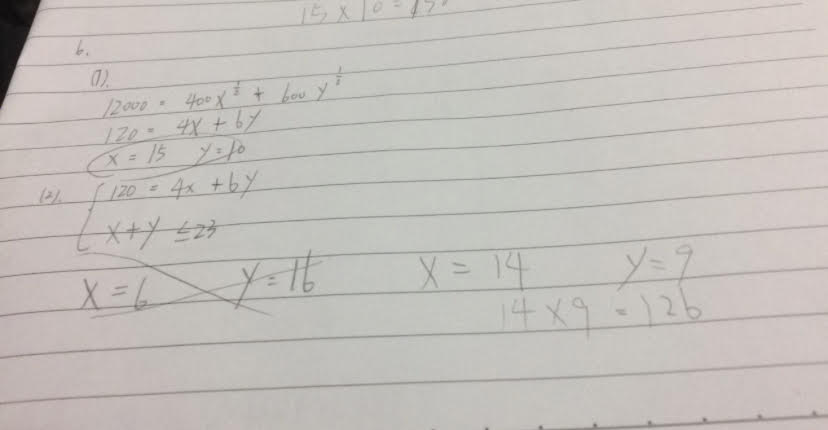 15 x 10 = 150
6.
(1).
12000 = 400x^½ + 600y^½
120 = 4x + 6y
x = 15 y = 10
(2). { 120 = 4x + 6y
x + y ≤ 23
x = 6 y = 16 x = 14 y = 9
14 x 9 = 126